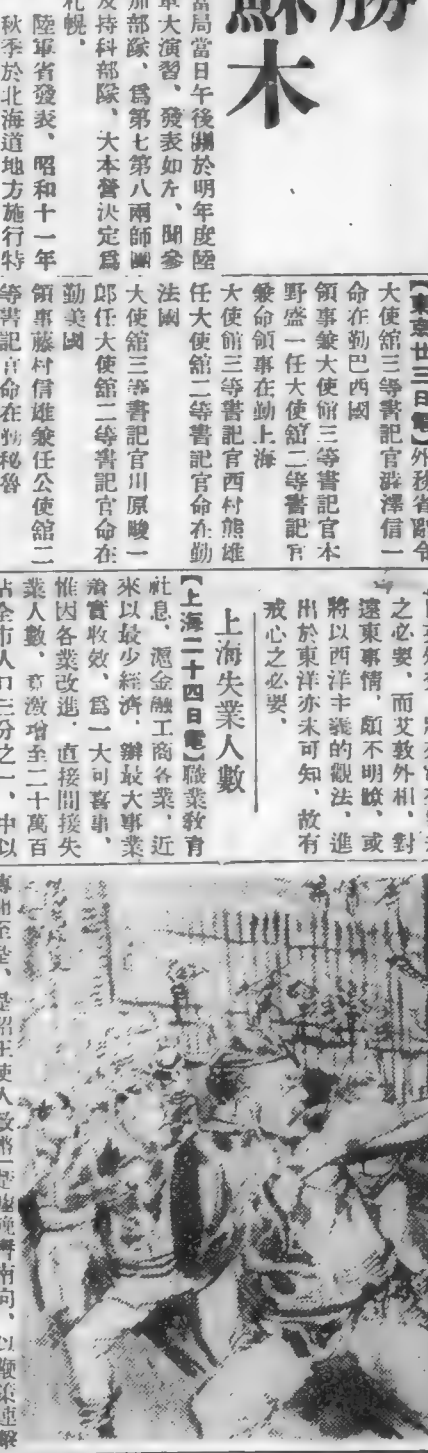 勝
蘇木
當局當日午後關於明年度陸
軍大演習、發表如左、聞參
加部隊、爲第七第八兩師團
及持科部隊、大本營決定爲
札幌、
陸軍省發表、昭和十一年
秋季於北海道地方施行特
【東京廿三日電】外務省辭令
大使舘三等書記官澁澤信一
命在勤巴西國
領事兼大使舘三等書記官本
野盛一任大使舘二等書記官
兼命領事在勤上海
大使舘三等書記官西村熊雄
任大使舘二等書記官命在勤
法國
大使舘三等書記官川原畯一
郎任大使舘二等書記官命在
勤美國
領事藤村信雄兼任公使舘二
等書記官命在勤秘魯
之必要、而艾敦外相、對
遠東事情、頗不明瞭、或
將以西洋主義的觀法、進
出於東洋亦未可知、故有
戒心之必要、
上海失業人數
【上海二十四日電】職業敎育
社息、滬金融工商各業、近
來以最少經濟、辦最大事業
着實收效、爲一大可喜事、
惟因各業改進、直接間接失
業人數、竟激增至二十萬百
佔全市人口三分之一、中以
南向、以